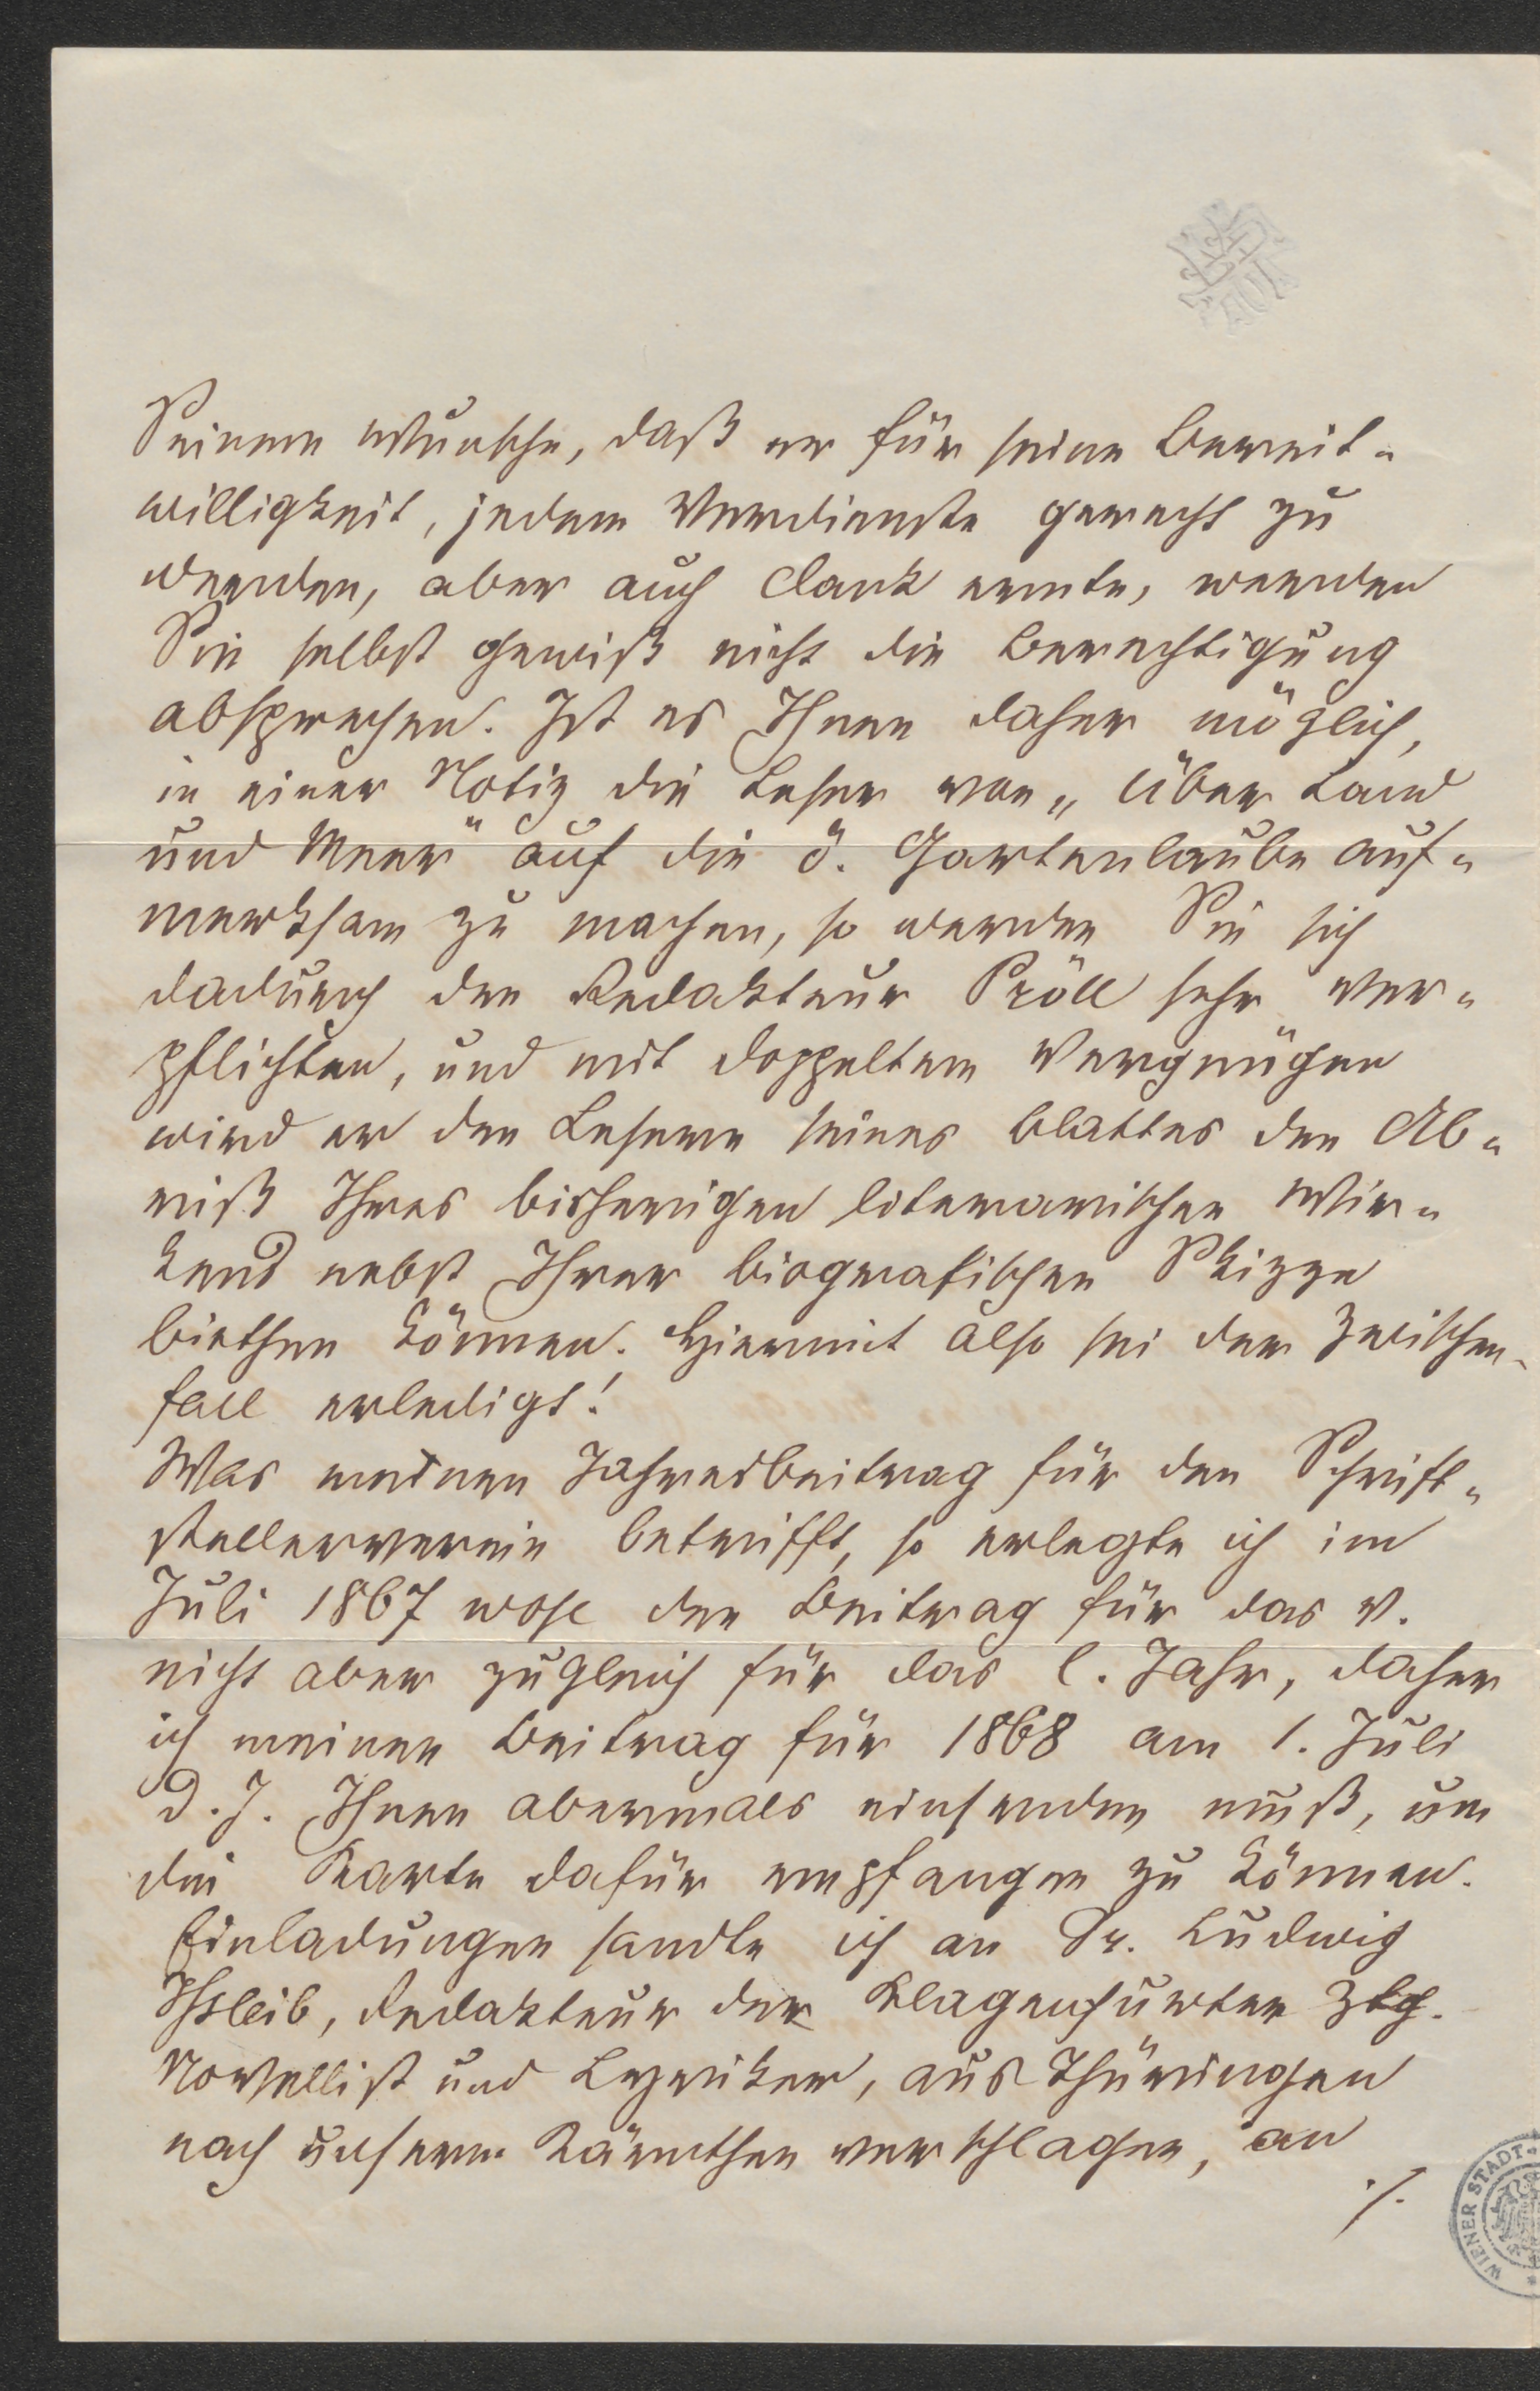 Seinem Wunsche, daß er für seine Bereit-
willigkeit, jedem Verdienste gerecht zu
werden, aber auch Dank ernte, werden
Sie selbst gewiß nicht die Berechtigung
absprechen. Ist es Ihnen daher möglich,
in einer Notiz die Leser von „Über Land
und Meer" auf die ö. Gartenlaube auf-
merksam zu machen, so werden Sie sich
dadurch den Redakteur Pröll sehr ver-
pflichten, und mit doppeltem Vergnügen
wird er den Lesern seines Blattes den Ab-
riß Ihres bisherigen literarischen Wir-
kens nebst Ihrer biografischen Skizze
biethen können. Hiermit also sei der Zwischen-
fall erledigt!
Was meinen Jahresbeitrag für den Schrift-
stellerverein betrifft, so erlegte ich im
Juli 1867 wohl den Beitrag für das v.
nicht aber zugleich für das l. Jahr, daher
ich meinen Beitrag für 1868 am 1. Juli
d. J. Ihnen abermals einsenden muß, um
die Karte dafür empfangen zu können.
Einladungen sandte ich an Dr. Ludwig
Ihsleib, Redakteur der Klagenfurter Ztg.
Novellist und Lyriker, aus Thüringen
nach unserm Kärnthen verschlagen, an
./.
WIENER STADT-